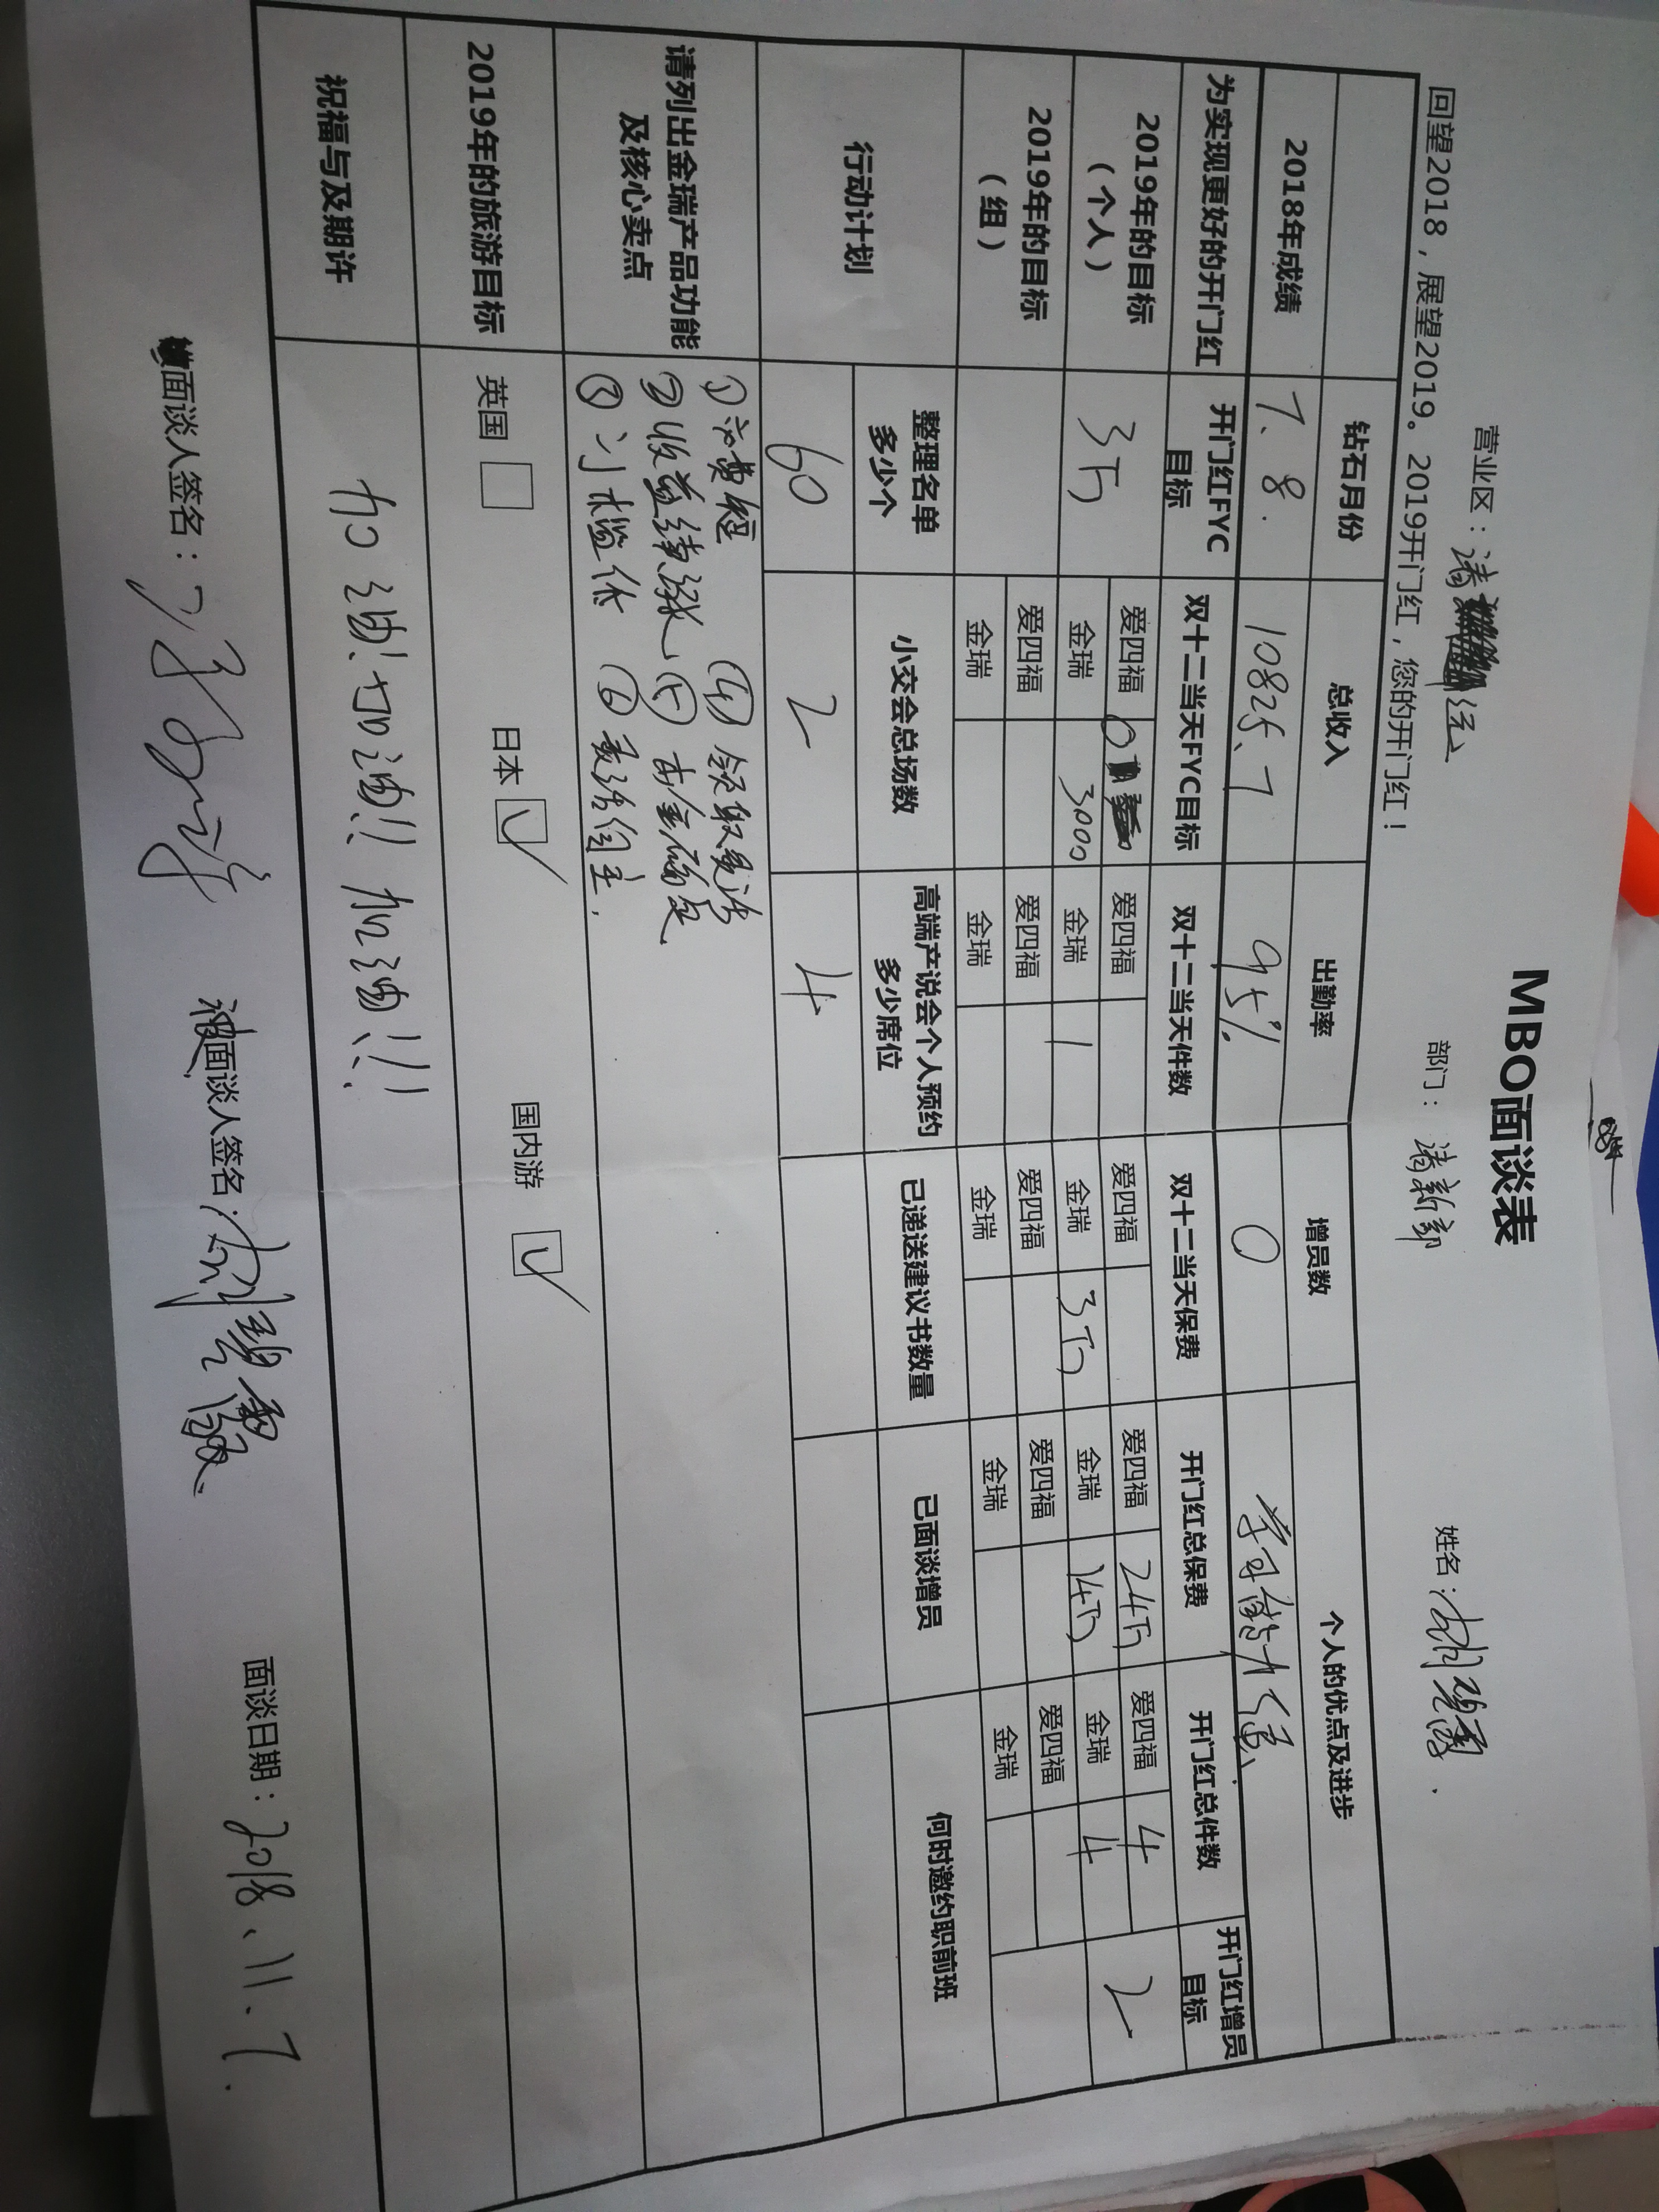 MBO面谈表
营业区： 部门：清新部 姓名：
回望2018，展望2019。2019开门红，您的开门红！
钻石月份 总收入 出勤率 增员数 个人的优点及进步
2018年成绩 7、8. 10825、7 95% 0
为实现更好的开门红 开门红FYC目标 双十二当天FYC目标 双十二当天件数 双十二当天保费 开门红总保费 开门红总件数 开门红增员目标
2019年的目标（个人） 3万 爱四福 0 爱四福 爱四福 爱四福 24万 爱四福 4 2
金瑞 3000 金瑞 1 金瑞 3万 金瑞 14万 金瑞 4
2019年的目标（组） 爱四福 爱四福 爱四福 爱四福 爱四福
金瑞 金瑞 金瑞 金瑞 金瑞
行动计划 整理名单多少个 小交会总场数 高端产说会个人预约多少席位 已递送建议书数量 已面谈增员 何时邀约职前班
60 2 4
请列出金瑞产品功能及核心卖点 ① ④领取灵活
②收益 ⑤
③门槛低 ⑥
2019年的旅游目标 英国 □ 日本 ☑ 国内游 ☑
祝福与及期许 加油！加油！！加油！！！
面谈人签名： 被面谈人签名： 面谈日期：2018、11、7.